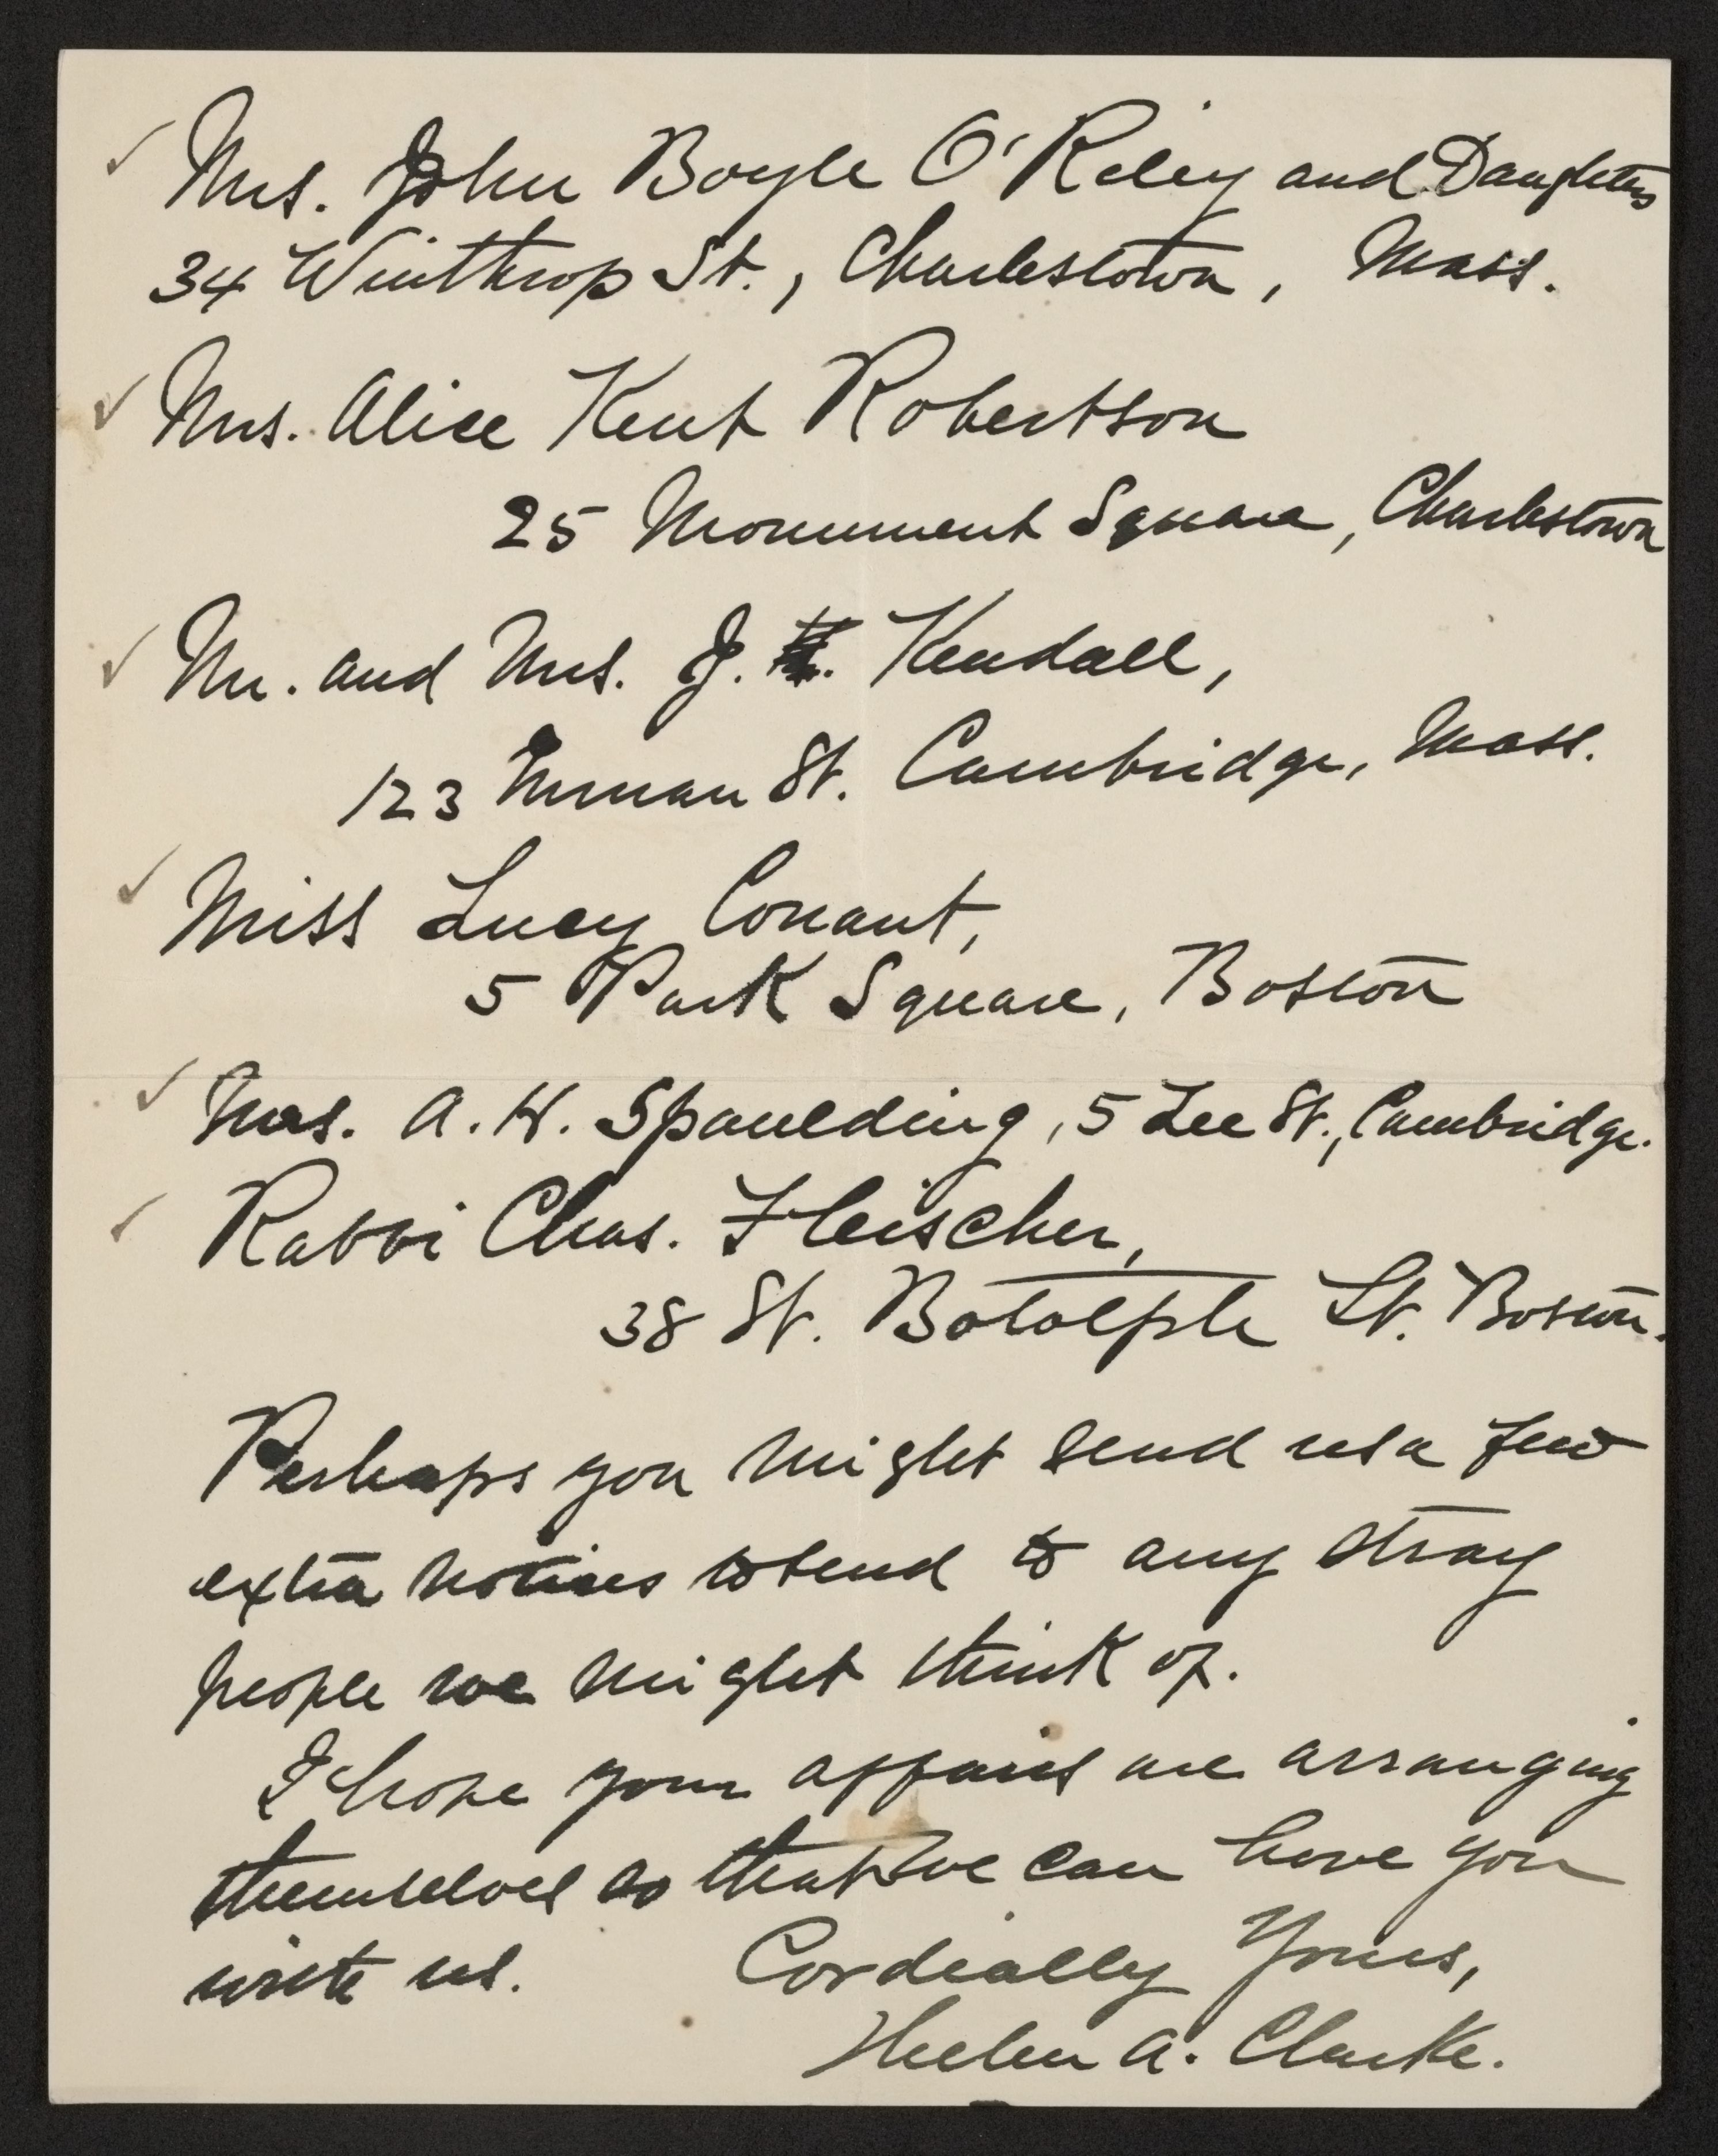 ✓ Mrs. John Boyle O'Reiley and Daughters
34 Winthrop St., Charlestown, Mass.
✓ Mrs. Alice Kent Robertson
25 Monument Square, Charlestown
✓ Mr. and Mrs. J. Kendall,
123 Inman St. Cambridge, Mass.
✓ Miss Lucy Conant,
5 Park Square, Boston
✓ Mrs. A. H. Spaulding, 5 Lee St., Cambridge.
✓ Rabbi Chas. Fleischer,
38 St. Botolph St. Boston.
Perhaps you might send us a few
extra notices to send to any stray
people we might think of.
I hope your affairs are arranging
themselves so that we can have you
write us. Cordially Yours,
Helen A. Clarke.